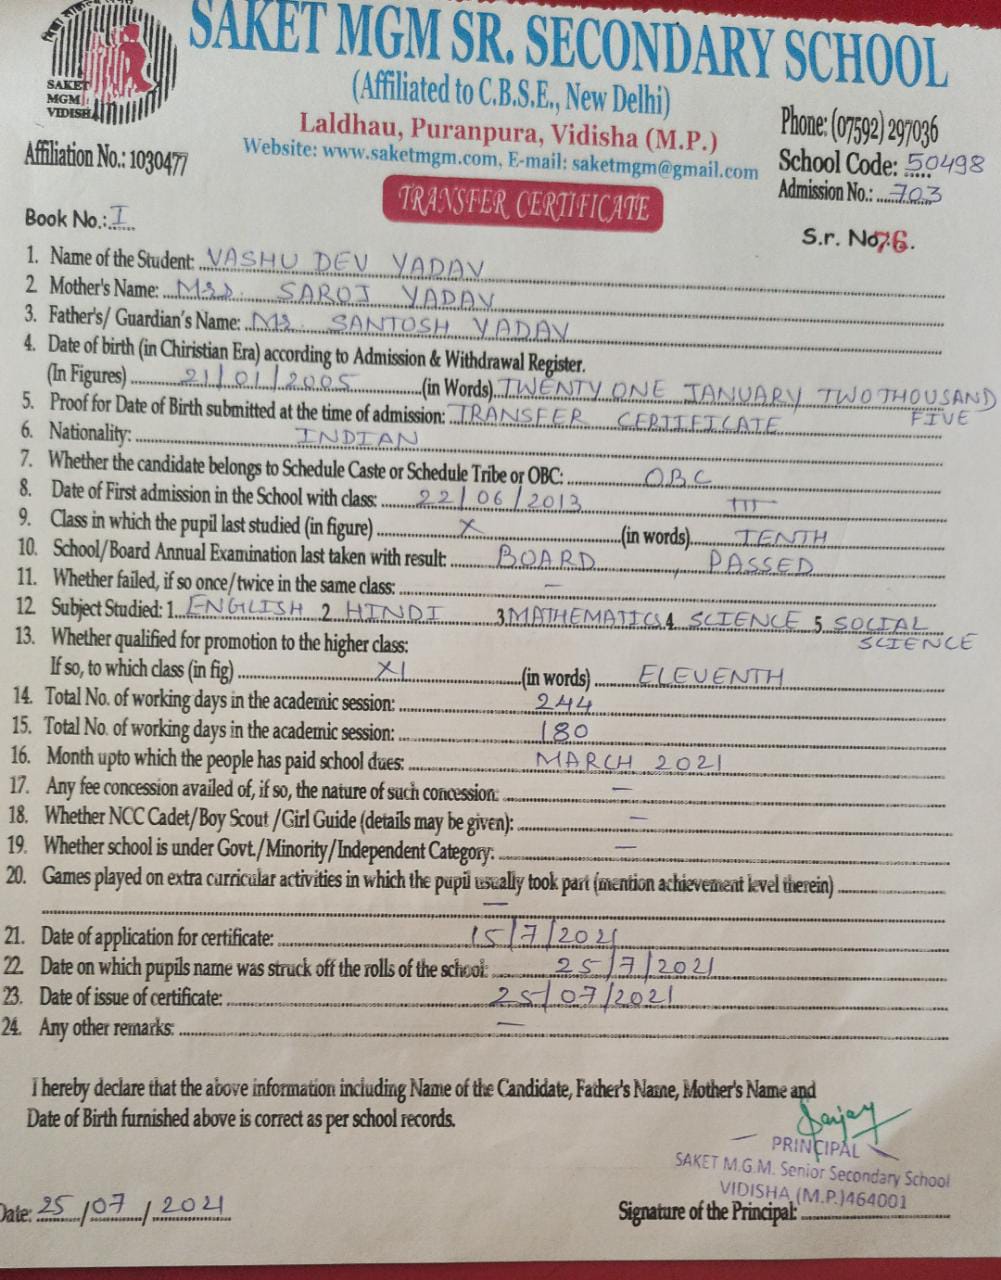 SAKET
MGM
VIDISHA
SAKET MGM SR. SECONDARY SCHOOL
(Affiliated to C.B.S.E., New Delhi)
Laldhau, Puranpura, Vidisha (M.P.)
Website: www.saketmgm.com, E-mail: saketmgm@gmail.com
Phone: (07592) 297036
Affiliation No.: 1030477
School Code: 50498
Admission No.: 703
TRANSFER CERTIFICATE
Book No.: I
S.r. No. 76.
1. Name of the Student: VASHU DEV YADAV
2. Mother's Name: Mrs. SAROJ YADAV
3. Father's/ Guardian's Name: Mr. SANTOSH YADAV
4. Date of birth (in Chiristian Era) according to Admission & Withdrawal Register.
(In Figures) 21/01/2005 (in Words) TWENTY ONE JANUARY TWO THOUSAND
FIVE
5. Proof for Date of Birth submitted at the time of admission: TRANSFER CERTIFICATE
6. Nationality: INDIAN
7. Whether the candidate belongs to Schedule Caste or Schedule Tribe or OBC: OBC
8. Date of First admission in the School with class: 22/06/2013 III
9. Class in which the pupil last studied (in figure) X (in words) TENTH
10. School/Board Annual Examination last taken with result: BOARD, PASSED
11. Whether failed, if so once/twice in the same class: –
12. Subject Studied: 1. ENGLISH 2. HINDI 3. MATHEMATICS 4. SCIENCE 5. SOCIAL
SCIENCE
13. Whether qualified for promotion to the higher class:
If so, to which class (in fig) XI (in words) ELEVENTH
14. Total No. of working days in the academic session: 244
15. Total No. of working days in the academic session: 180
16. Month upto which the people has paid school dues: MARCH 2021
17. Any fee concession availed of, if so, the nature of such concession: –
18. Whether NCC Cadet/Boy Scout /Girl Guide (details may be given): –
19. Whether school is under Govt./Minority/Independent Category: –
20. Games played on extra curricular activities in which the pupil usually took part (mention achievement level therein)
–
21. Date of application for certificate: 15/7/2021
22. Date on which pupils name was struck off the rolls of the school: 25/7/2021
23. Date of issue of certificate: 25/07/2021
24. Any other remarks: –
I hereby declare that the above information including Name of the Candidate, Father's Name, Mother's Name and
Date of Birth furnished above is correct as per school records.
Sanjay
PRINCIPAL
SAKET M.G.M. Senior Secondary School
VIDISHA (M.P.)464001
Date: 25/07/2021
Signature of the Principal: